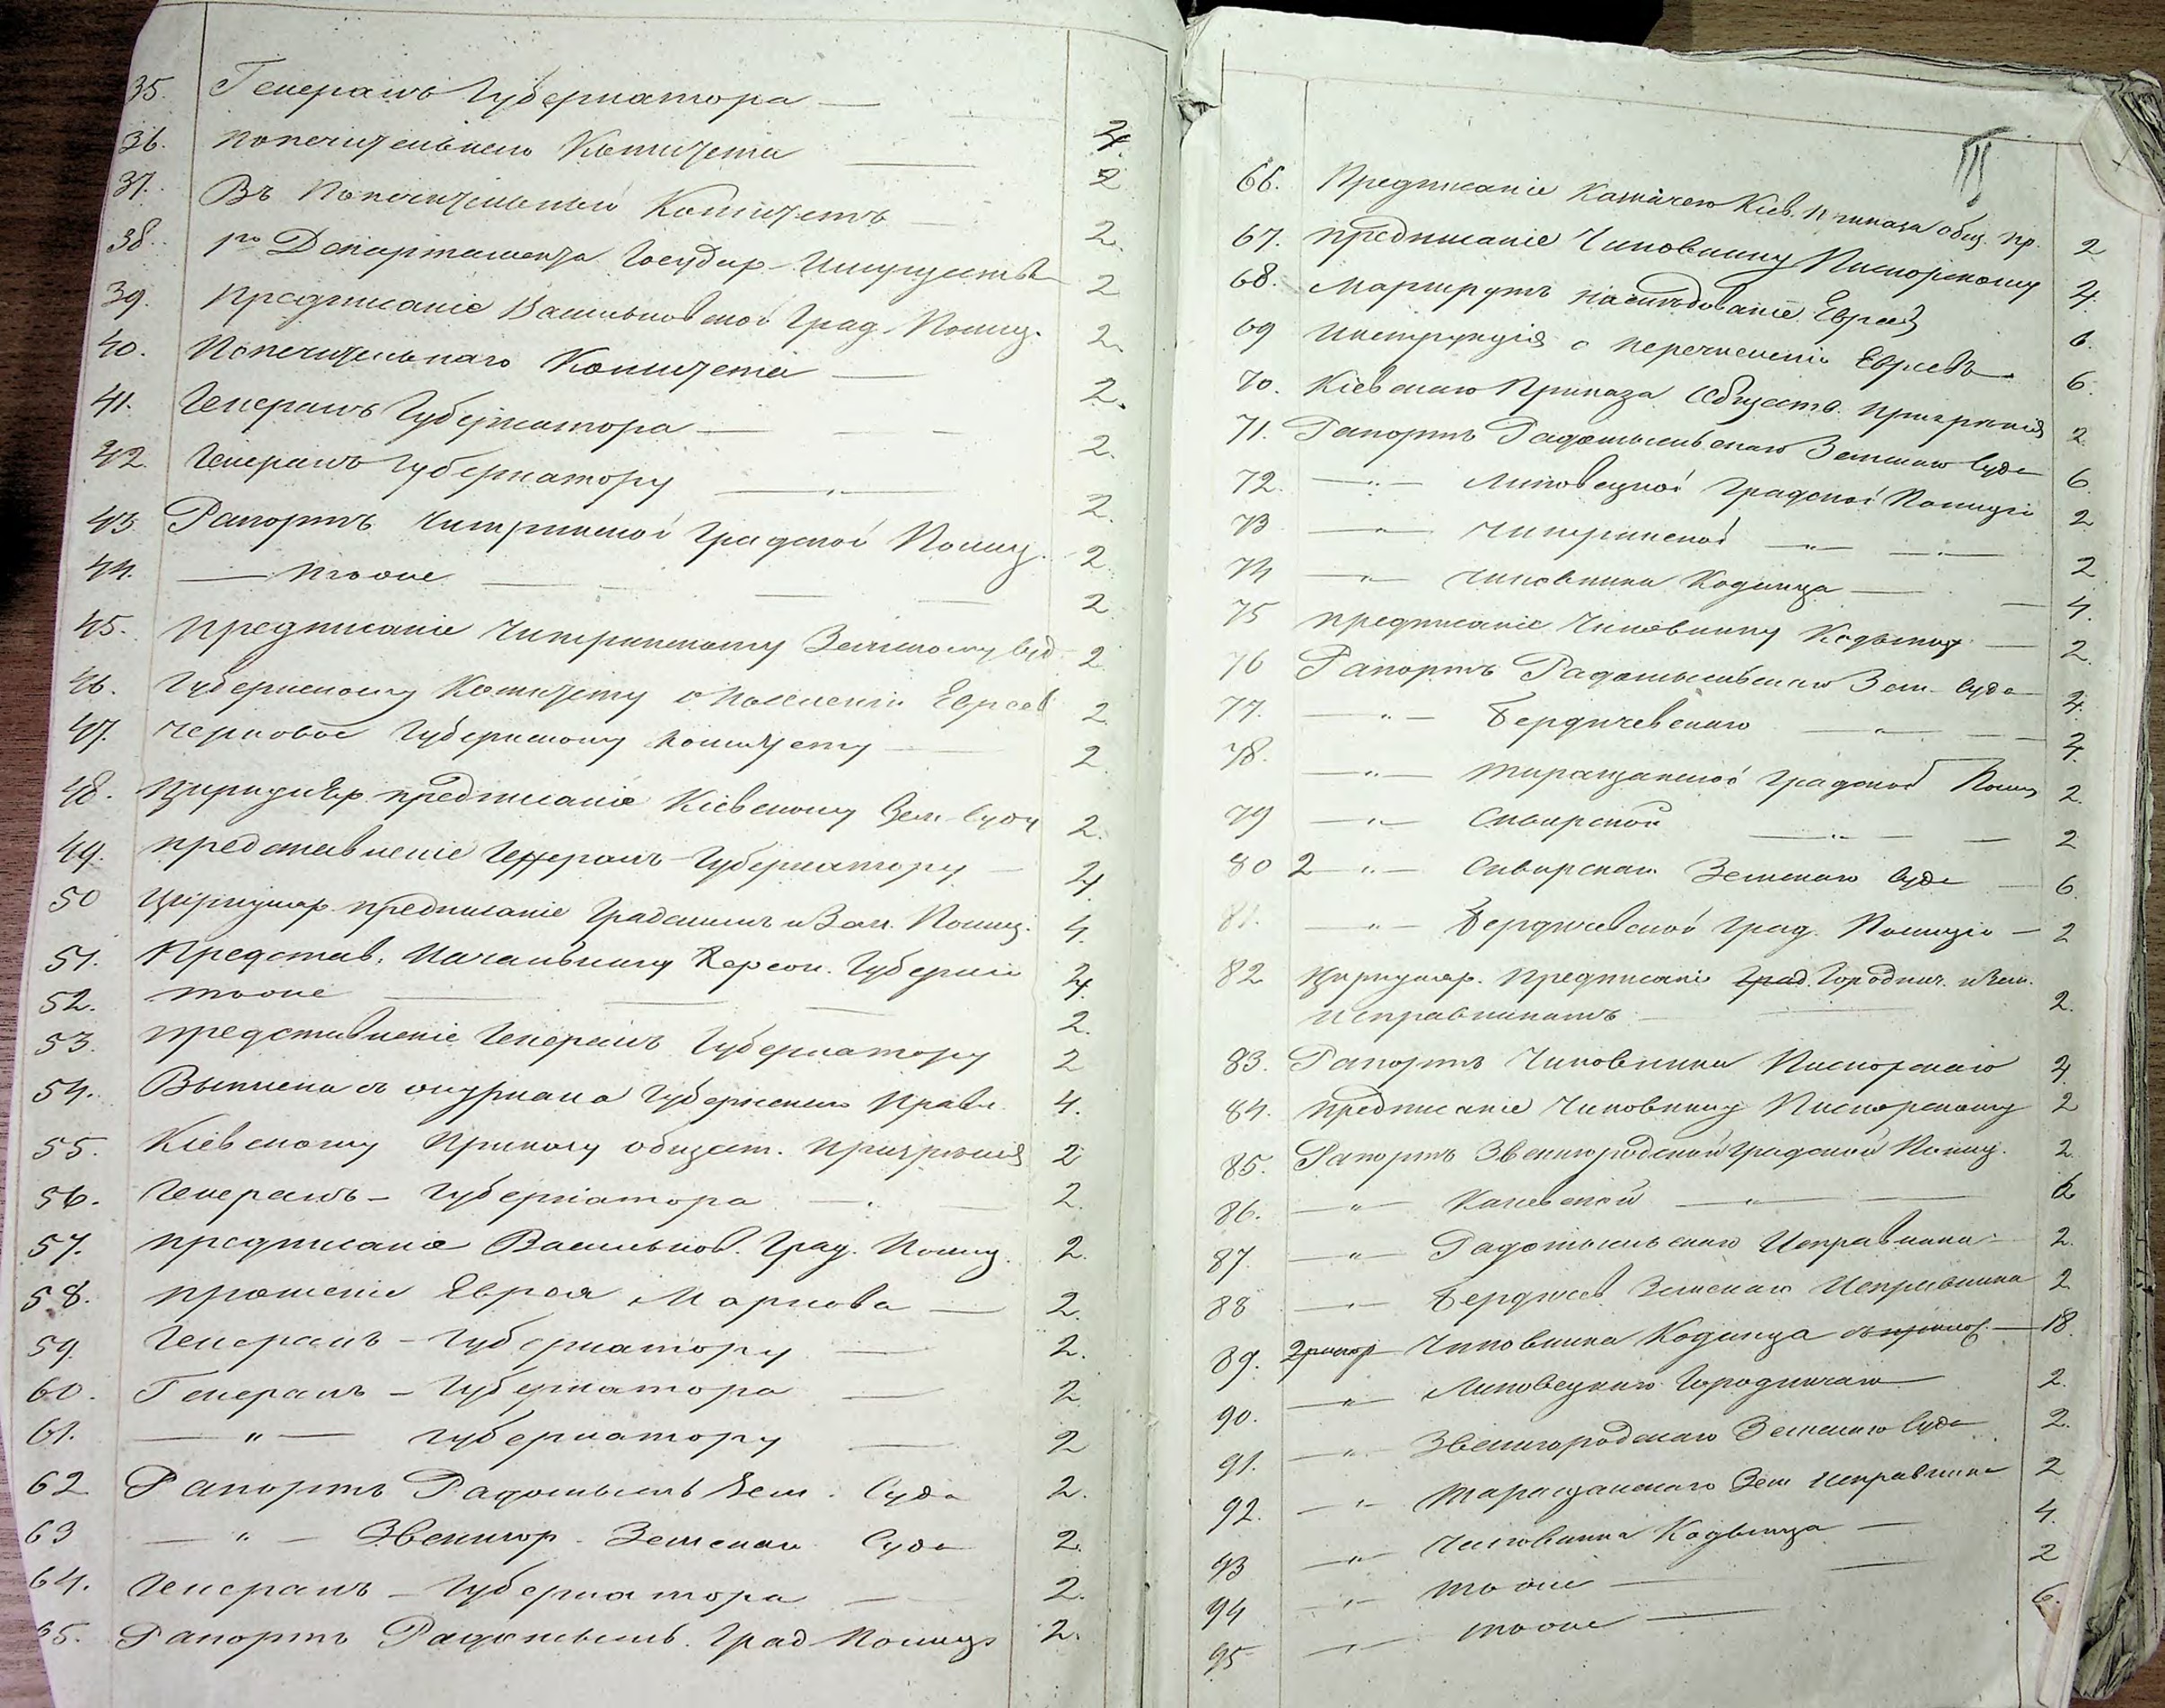 35. Генералъ Губернатора — 4
36. Попечительнаго Комитета — 2
37. Въ Попечительный Комитетъ — 2.
38. 1го Департамента Государ. Имуществъ 2
39. Предписаніе Васильковской Град. Полиц. 2.
40. Попечительнаго Комитета — 2.
41. Генералъ Губернатора — 2.
42. Генералъ Губернатору — 2.
43. Рапортъ Чигринской Градской Полиц. 2
44. — тоже — 2
45. Предписаніе Чигринскому Земскому Суд 2
46. Губернскому Комитету о поселеніи Евреев 2
47. Черновое Губернскому Комитету — 2
48. Циркуляр. предписаніе Кіевскому Зем. Суду 2.
49. представленіе Генералъ-Губернатору — 4.
50 Циркуляр. предписаніе Градским и Зем. Полиц. 4.
51. Представ. Начальнику Херсон. Губерніи 4.
52. тоже — 2.
53. представленіе Генералъ Губернатору 2
54. Выписка съ журнала Губернскаго Правл. 4.
55. Кіевскому Приказу общест. призрѣнія 2
56. Генералъ-Губернатора — 2.
57. предписаніе Васильков. Град. Полиц. 2.
58. прошеніе Еврея Маркова — 2.
59. Генералъ-Губернатору — 2.
60. Генералъ-Губернатора — 2
61. — " — Губернатору — 2
62 Рапортъ Радомысль Зем. Суда 2.
63 — " — Звенигор. Земскаго Суда 2.
64. Генералъ-Губернатора — 2.
65. Рапортъ Радомысль. Град Полиціи 2.
III
66. Предписаніе Казначею Кіев. Приказа общ. пр. 2
67. предписаніе Чиновнику Писнорскому 4.
68. Маршрутъ на слѣдованіе Евреевъ 6.
69 Инструкція о перечисленіи Евреевъ 6.
70. Кіевскаго Приказа Обществ. призрѣнія 2
71. Рапортъ Радомысльскаго Земскаго Суда 6.
72. — " — Липовецкой Градской Полиціи 2
73 — " — Чигринской — " — 2
74 — " — Чиновника Кодинца — 4.
75 предписаніе Чиновнику Кодынцу — 2.
76 Рапортъ Радомысльскаго Зем. Суда 4.
77. — " — Бердичевскаго — " — 4.
78. — " — Таращанской Градской Полиц 2.
79 — " — Сквирской — " — 2
80 2 — " — Сквирскаго Земскаго Суда — 6.
81. — " — Бердичевской Град. Полиціи — 2
82 Циркуляр. Предписаніе Град. Городнич. и Зем.
Исправникамъ — 2.
83. Рапортъ Чиновника Писнорскаго 4.
84. предписаніе Чиновнику Писнорскому 2
85. Рапортъ Звенигородской Градской Полиц. 2.
86. — " — Каневской — " — 6
87. — " — Радомысльскаго Исправника 2.
88 — " — Бердичев Земскаго Исправника 2
89. 2 рапор Чиновника Кодинца — 18.
90. — " — Липовецкаго Городничаго — 2.
91. — " — Звенигородскаго Земскаго Суда 2.
92. — " — Таращанскаго Зем Исправника 2
93 — " — Чиновника Кодынца — 4.
94 — " — тоже — 2
95 — " — тоже — 6.